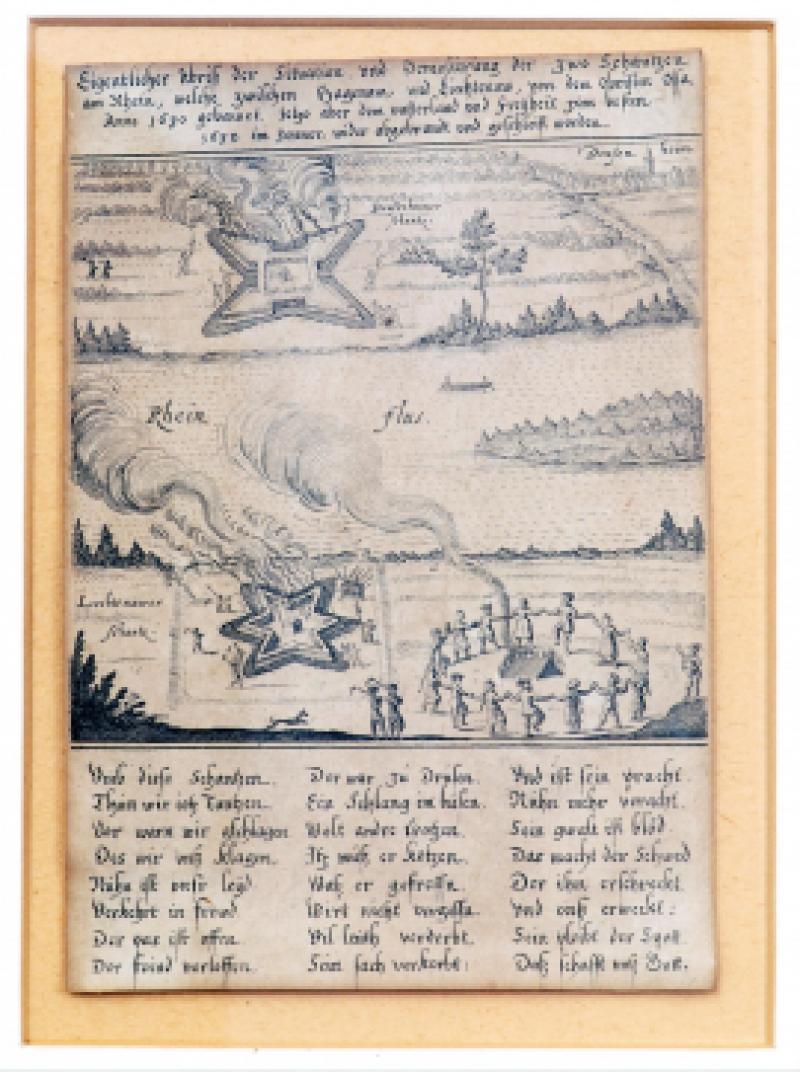 Eigentlicher Abriß der Situation und Demolierung der Zwo Schantzen
am Rhein, welche zwischen Hagenaw, und Liechtenaw, von dem Obristen Ossa
Anno 1630 gebawet, jetzo aber dem vatterland und Freyheit zum besten
1632 im Jenner, wider abgebrandt und geschleifft worden.
Drusen heim
Schantz.
Rhein flus.
Liechtenawer
Schantz.
Umb diese Schantzen
Thun wir ietz Tantzen
Vor warn wir gschlagen
Des wir uns klagen.
Nuhn ist unser leyd
Verkehrt in freud
Der pas ist offen
Der feind verloffen.
Der war zu Drusen
Ein Schlang im busen.
Wolt andre
Itz muß er kotzen.
Was er gefressn.
Wirt nicht vergessn.
Vil leuth verderbt.
Sein sach verkerbt:
Und ist sein pracht
Nuhn mehr veracht.
Sein gwalt ist blöd.
Das macht der Schwed
Der ihn erschreckt.
Und uns erweckt:
Sein bleibt der Spott
Das schafft uns Gott.